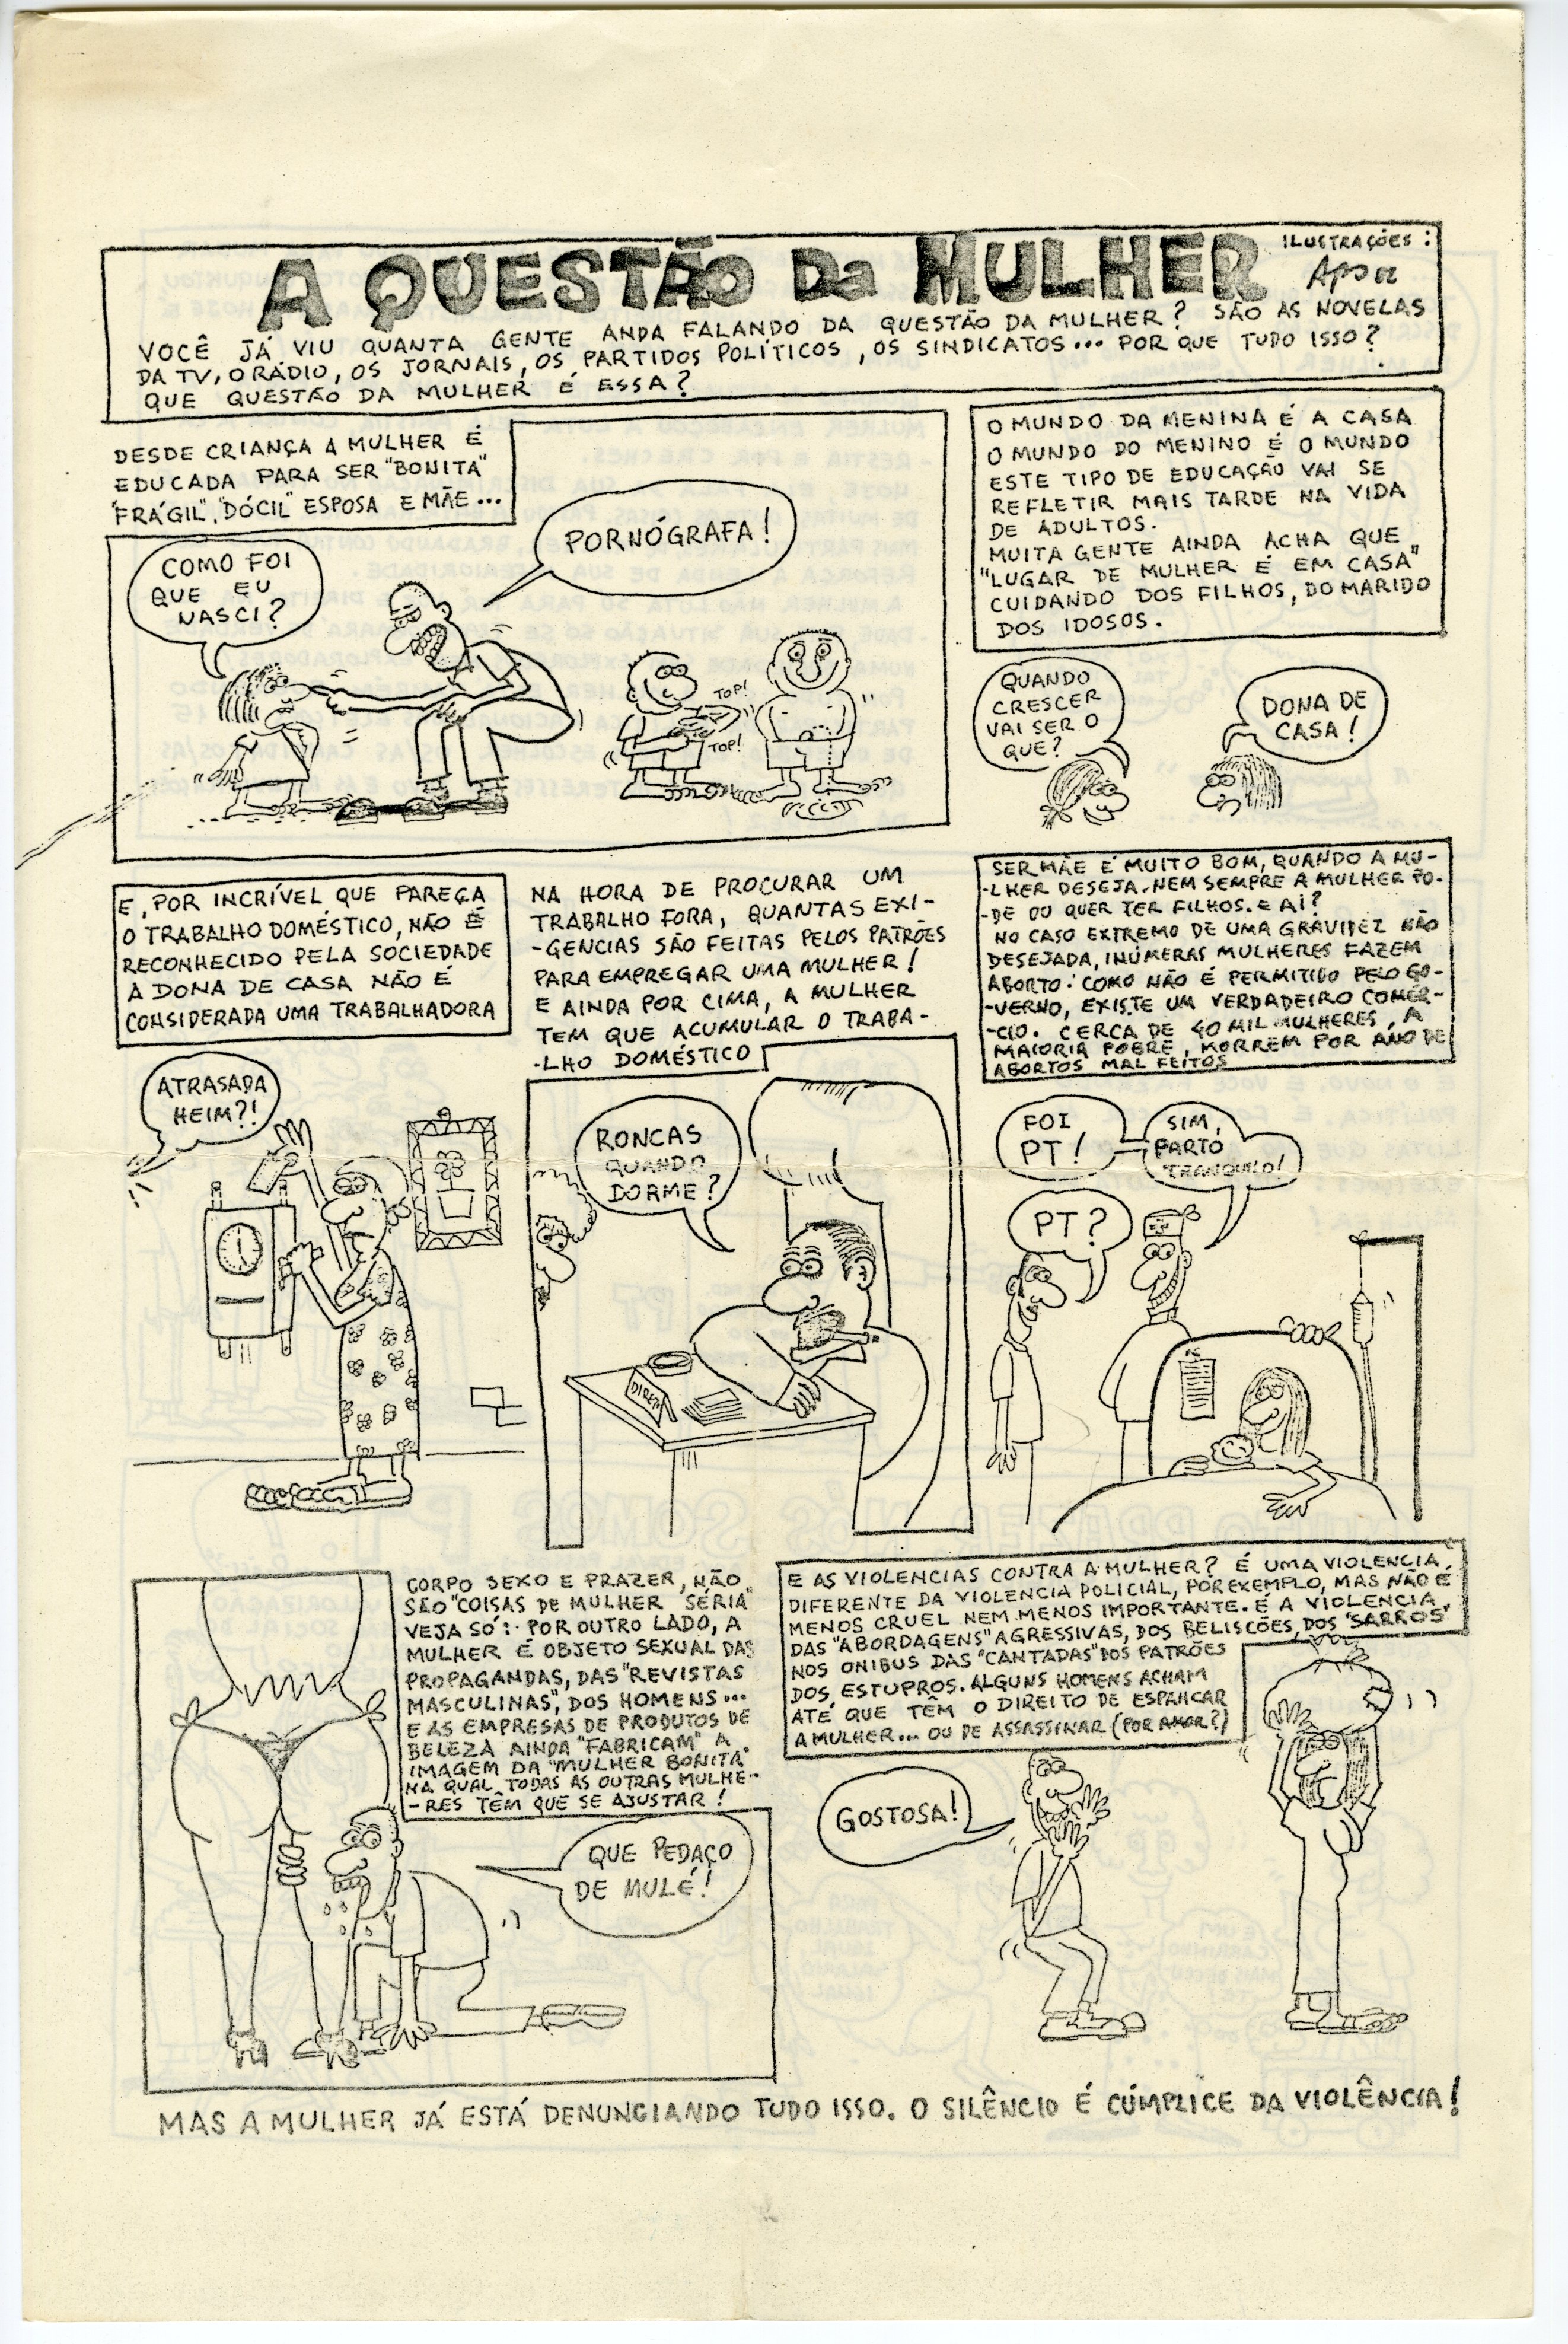 A QUESTÃO Da MULHER
ILUSTRAÇÕES:
VOCÊ JÁ VIU QUANTA GENTE ANDA FALANDO DA QUESTÃO DA MULHER? SÃO AS NOVELAS
DA TV, O RÁDIO, OS JORNAIS, OS PARTIDOS POLÍTICOS, OS SINDICATOS... POR QUE TUDO ISSO?
QUE QUESTÃO DA MULHER É ESSA?
DESDE CRIANÇA A MULHER É
EDUCADA PARA SER "BONITA"
"FRÁGIL", "DÓCIL" ESPOSA E MÃE...
COMO FOI
QUE EU
NASCI?
PORNÓGRAFA!
TOP!
TOP!
O MUNDO DA MENINA É A CASA
O MUNDO DO MENINO É O MUNDO
ESTE TIPO DE EDUCAÇÃO VAI SE
REFLETIR MAIS TARDE NA VIDA
DE ADULTOS.
MUITA GENTE AINDA ACHA QUE
"LUGAR DE MULHER É EM CASA"
CUIDANDO DOS FILHOS, DO MARIDO
DOS IDOSOS.
QUANDO
CRESCER
VAI SER O
QUE?
DONA DE
CASA!
E, POR INCRÍVEL QUE PAREÇA
O TRABALHO DOMÉSTICO, NÃO É
RECONHECIDO PELA SOCIEDADE
A DONA DE CASA NÃO É
CONSIDERADA UMA TRABALHADORA
ATRASADA
HEIM?!
NA HORA DE PROCURAR UM
TRABALHO FORA, QUANTAS EXI-
-GENCIAS SÃO FEITAS PELOS PATRÕES
PARA EMPREGAR UMA MULHER!
E AINDA POR CIMA, A MULHER
TEM QUE ACUMULAR O TRABA-
-LHO DOMÉSTICO
RONCAS
QUANDO
DORME?
DIRET
SER MÃE É MUITO BOM, QUANDO A MU-
-LHER DESEJA. NEM SEMPRE A MULHER PO-
-DE OU QUER TER FILHOS. E AÍ?
NO CASO EXTREMO DE UMA GRAVIDEZ NÃO
DESEJADA, INÚMERAS MULHERES FAZEM
ABORTO. COMO NÃO É PERMITIDO PELO GO-
-VERNO, EXISTE UM VERDADEIRO COMÉR-
-CIO. CERCA DE 40 MIL MULHERES, A
MAIORIA POBRE, MORREM POR ANO DE
ABORTOS MAL FEITOS
FOI
PT!
SIM,
PARTO
TRANQUILO!
PT?
CORPO SEXO E PRAZER, NÃO
SÃO "COISAS DE MULHER SÉRIA"
VEJA SÓ: POR OUTRO LADO, A
MULHER É OBJETO SEXUAL DAS
PROPAGANDAS, DAS "REVISTAS
MASCULINAS", DOS HOMENS...
E AS EMPRESAS DE PRODUTOS DE
BELEZA AINDA "FABRICAM" A
IMAGEM DA "MULHER BONITA"
NA QUAL TODAS AS OUTRAS MULHE-
-RES TÊM QUE SE AJUSTAR!
QUE PEDAÇO
DE MULÉ!
E AS VIOLENCIAS CONTRA A MULHER? É UMA VIOLENCIA,
DIFERENTE DA VIOLENCIA POLICIAL, POR EXEMPLO, MAS NÃO É
MENOS CRUEL NEM MENOS IMPORTANTE. É A VIOLENCIA,
DAS "ABORDAGENS" AGRESSIVAS, DOS BELISCÕES, DOS "SARROS"
NOS ONIBUS DAS "CANTADAS" DOS PATRÕES
DOS ESTUPROS. ALGUNS HOMENS ACHAM
ATÉ QUE TÊM O DIREITO DE ESPANCAR
A MULHER... OU DE ASSASSINAR (POR AMOR?)
GOSTOSA!
MAS A MULHER JÁ ESTÁ DENUNCIANDO TUDO ISSO. O SILÊNCIO É CÚMPLICE DA VIOLÊNCIA!